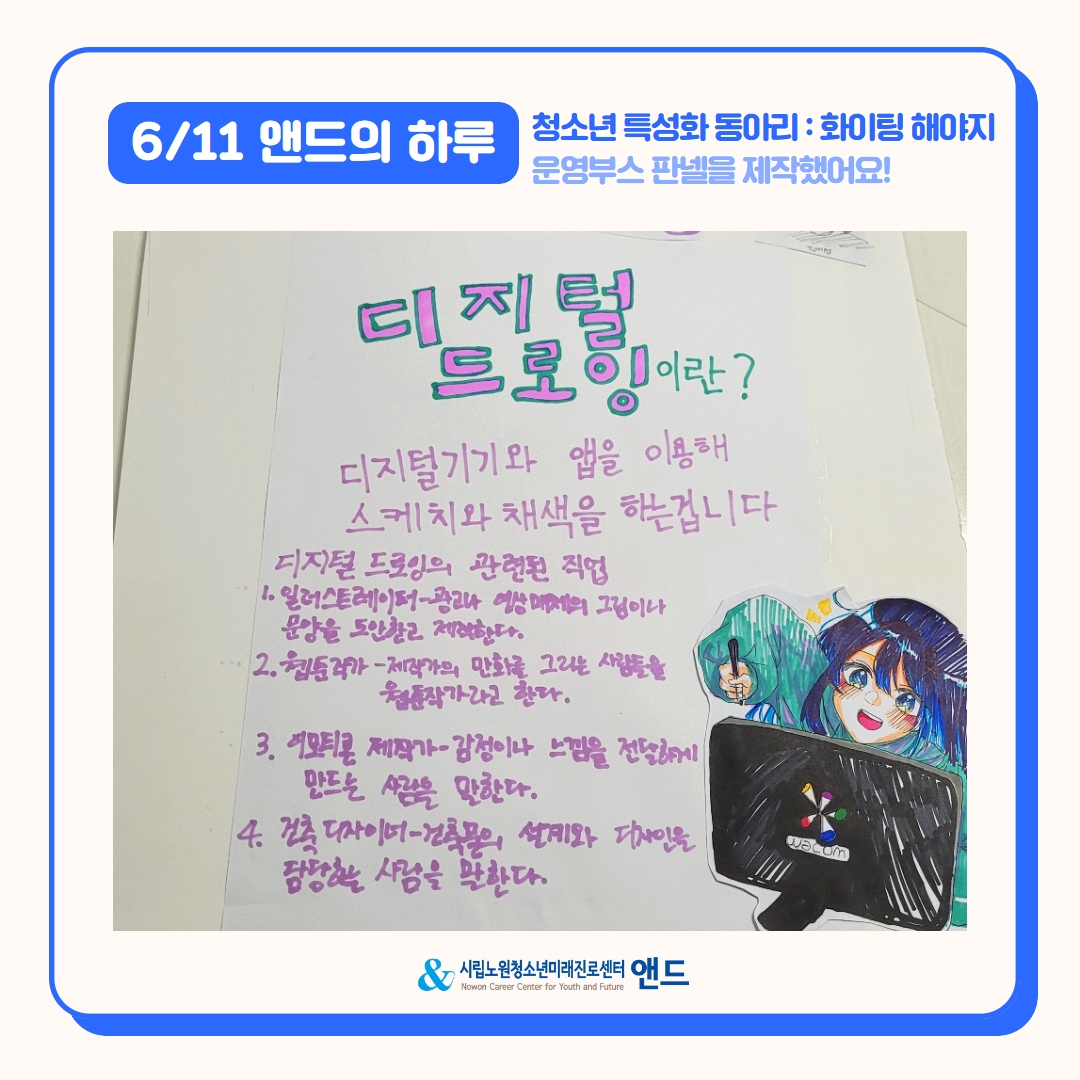 6/11 앤드의 하루
청소년 특성화 동아리 : 화이팅 해야지
운영부스 판넬을 제작했어요!
디지털
드로잉이란?
디지털기기와 앱을 이용해
스케치와 채색을 하는겁니다
디지털 드로잉의 관련된 직업
1. 일러스트레이터-광고나 영상매체의 그림이나
문양을 도안한고 제작한다.
2. 웹툰작가-제작가의 만화를 그리는 사람들을
웹툰작가라고 한다.
3. 이모티콘 제작가-감정이나 느낌을 전달하게
만드는 사람을 말한다.
4. 건축 디자이너-건축물의 설계와 디자인을
담당하는 사람을 말한다.
wacom
& 시립노원청소년미래진로센터 앤드
Nowon Career Center for Youth and Future